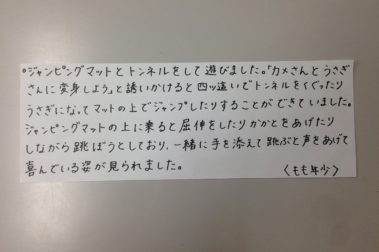 ○ジャンピングマットとトンネルをして遊びました。「カメさんとうさぎ
さんに変身しよう」と誘いかけると四ツ這いでトンネルをくぐったり
うさぎになってマットの上でジャンプしたりすることができていました。
ジャンピングマットの上に乗ると屈伸をしたりかかとをあげたり
しながら跳ぼうとしており、一緒に手を添えて跳ぶと声をあげて
喜んでいる姿が見られました。
〈もも年少〉